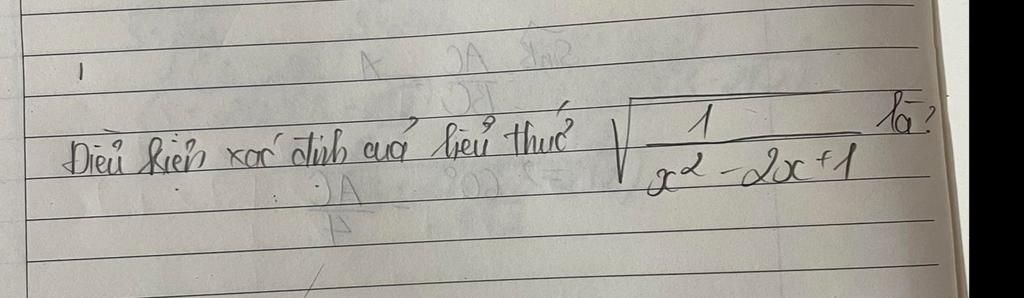 Điều kiện xác định của biểu thức $\sqrt{\frac{1}{x^2-2x+1}}$ là?